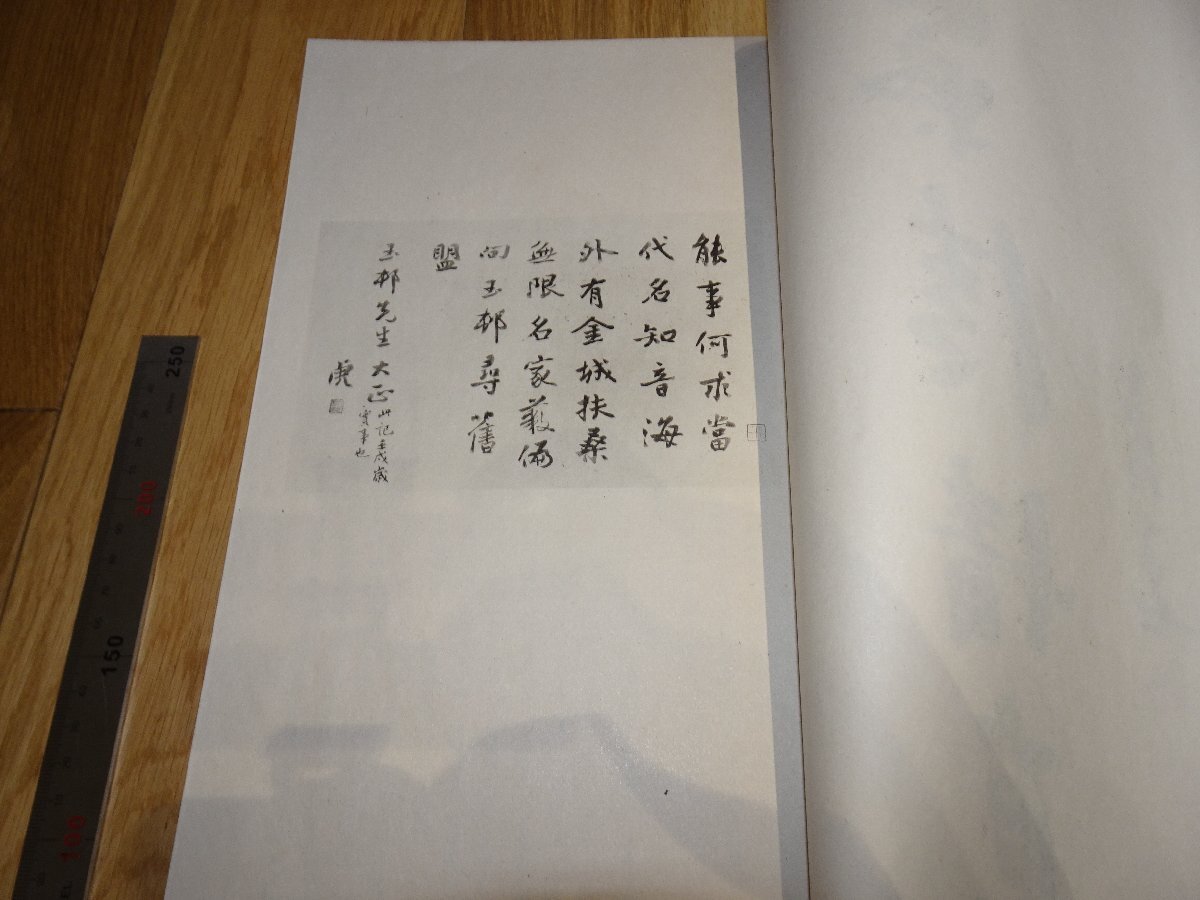 能事何求當
代名知音海
外有金城扶桑
無限名家蓺偏
向玉邨尋舊
盟
玉邨先生大正
此記壬戌歲
實事也
虎
250
200
150
100